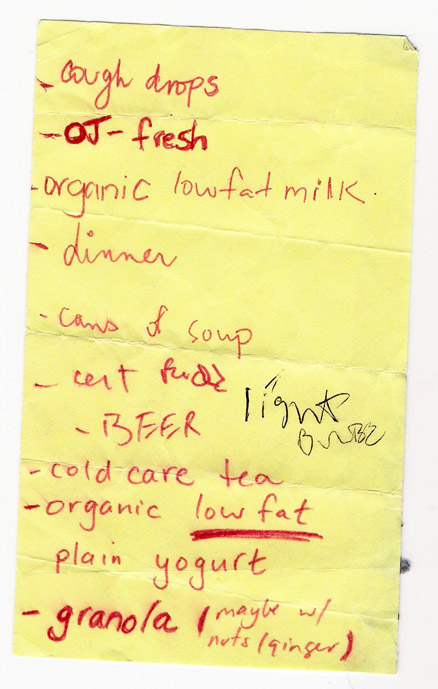 - cough drops
- OJ - fresh
- organic lowfat milk.
- dinner
- cans of soup
-
- BEER
light
- cold care tea
- organic low fat
plain yogurt
- granola (maybe w/
nuts/ginger)